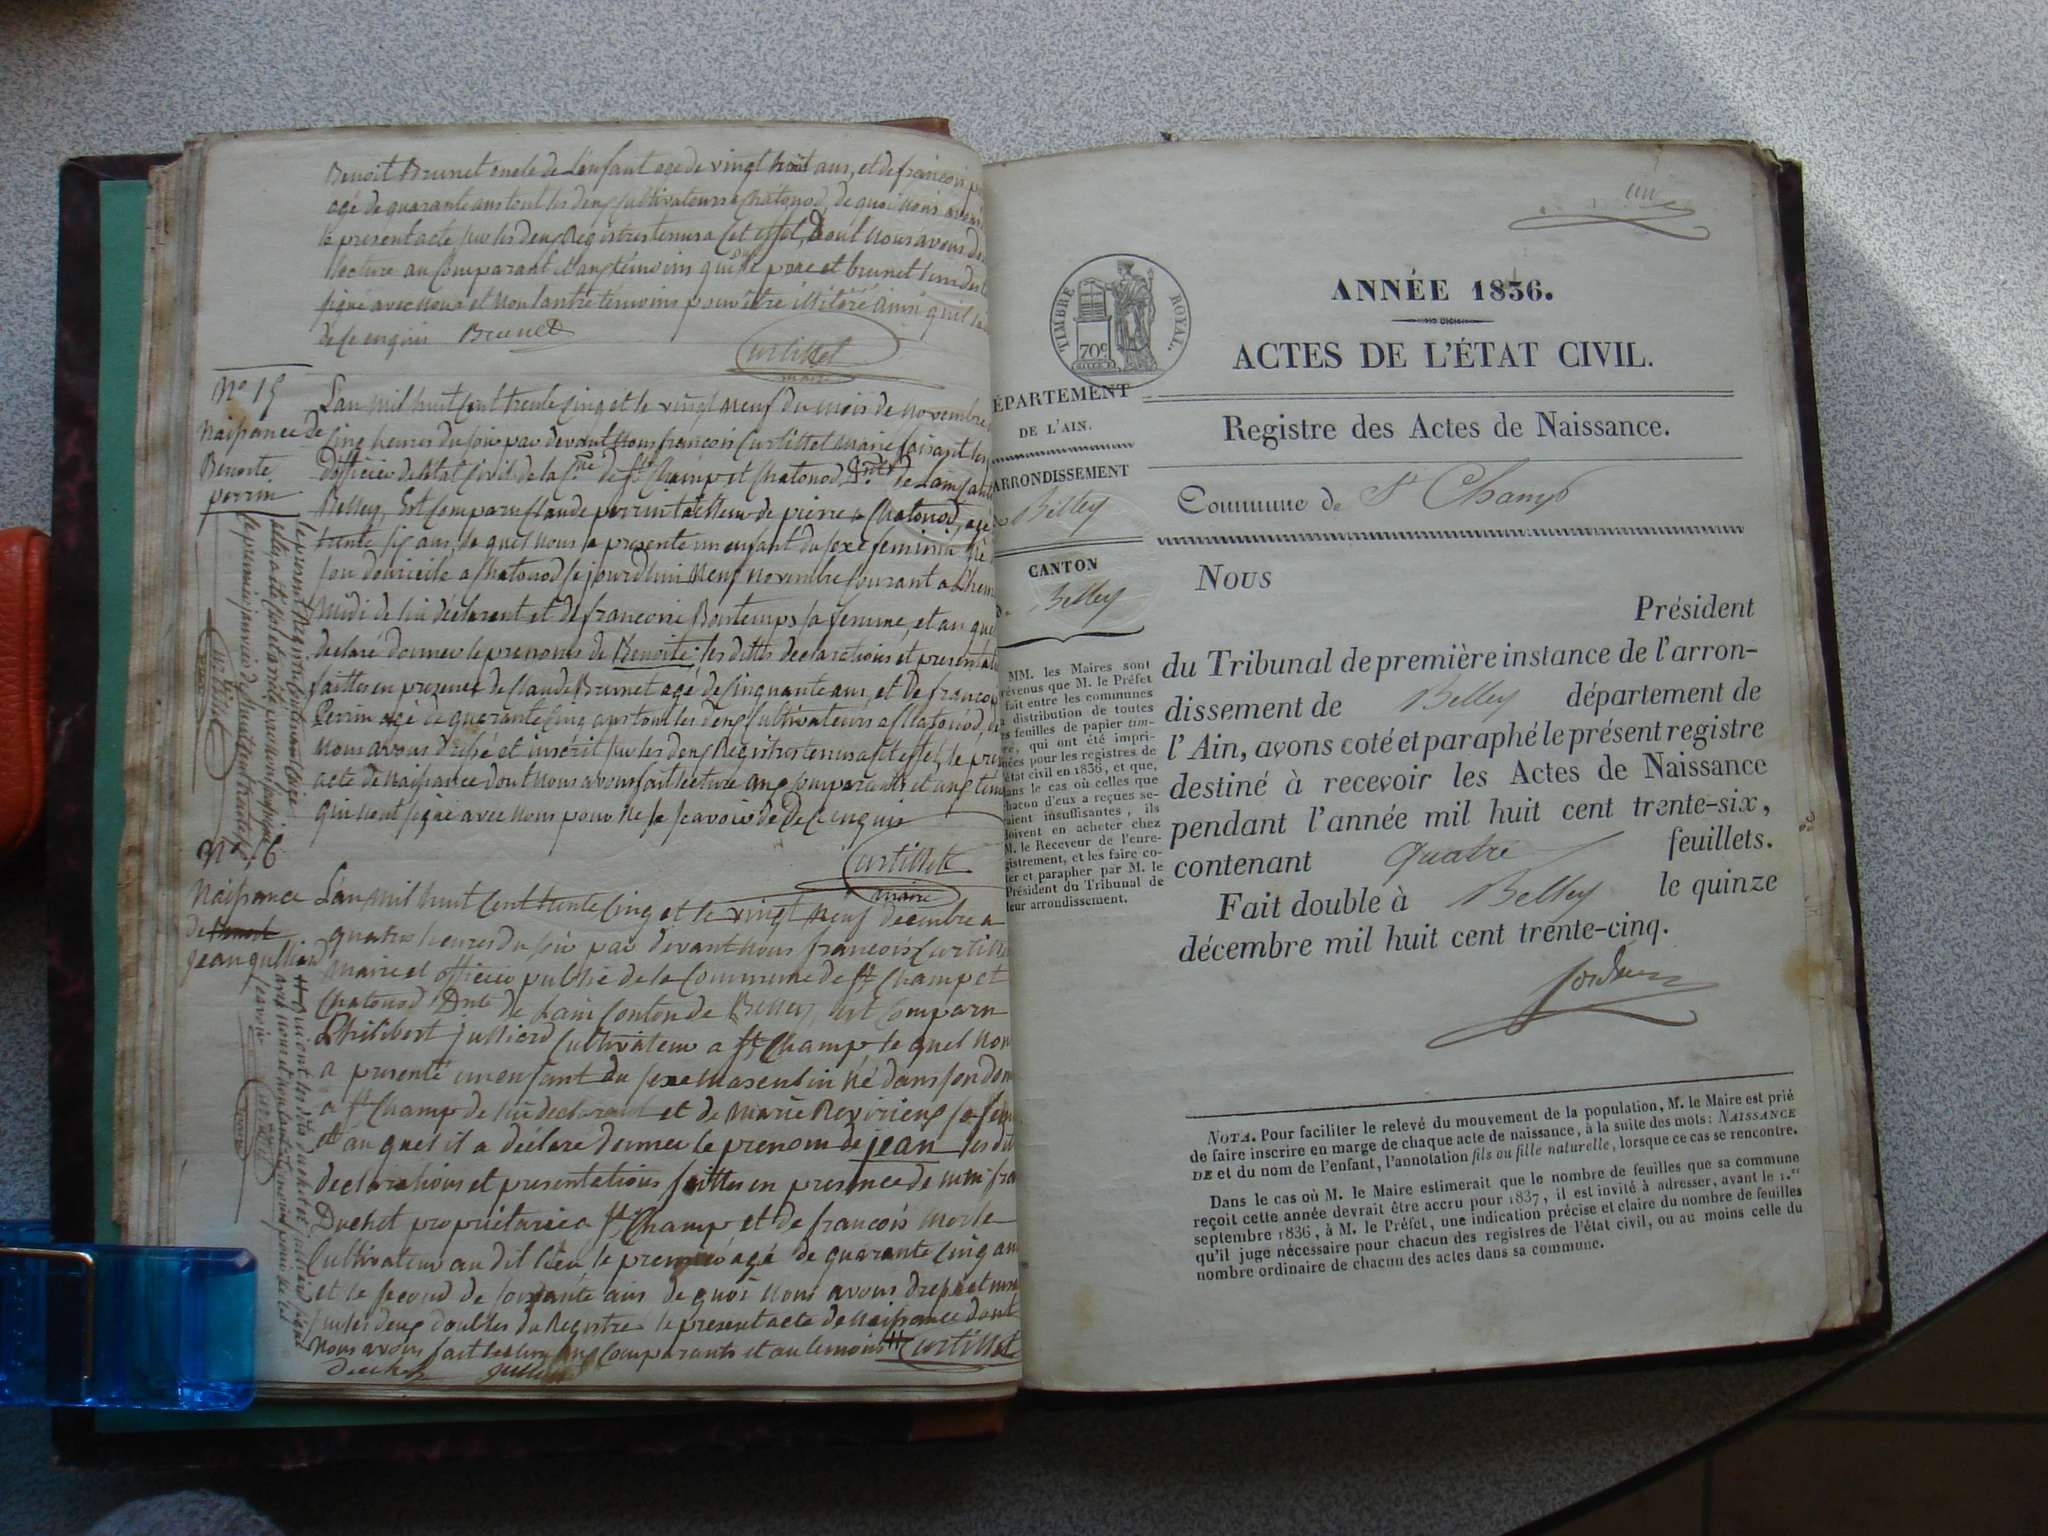 Benoit Brunet oncle de L'enfant agé de vingt huit ans, et de françois
agé de quarante ans tout les deux Cultivateurs a Chatonod, de quoi nous avons
le present acte sur les deux Registres tenus a Cet effet, Dont nous avons
Lecture au Comparant et aux témoins qui ont et brunet l'un des
signé avec nous et non l'autre témoins pour être illitéré ainsi qu'il
de ce enquis Brunet
Curtillet
maire
N° 15
Naissance de
Benoite
perrin
L'an mil huit Cent trente Cinq et le vingt neuf du mois de novembre
Cinq heures du soir par devant Nous françois Curtillet Maire faisant
d'officier de l'état Civil de la Cne de St Champ et Chatonod, Dnt de Lain Canton
Belley, Est Comparu Claude perrin tailleur de pierre a Chatonod, agé
trente six ans, le quel nous a presenté un enfant du sexe feminin né
son domicile a Chatonod le jourd'hui Neuf novembre Courant a L'heure
Midi de lui déclarent et de francoise Bontemps sa femme, et au quel
déclaré donner le prenoms de Benoite les dittes declarations et presentation
faittes en presence de Claude Brunet agé de Cinquante ans, et De francois
Perrin agé de quarante Cinq ans tout les deux Cultivateurs a Chatonod, de
Nous avons Dressé et inscrit sur les deux Registres tenus a Cet effet, le présent
acte de Naissance dont nous avons fait lecture aux comparants et aux temoins
qui nont signé avec nous pour ne le sçavoir de De Ce enquis
Curtillet
maire
le present Registre
a été Clos et arrêté par nous soussigné
le premier janvier mil huit Cent trente six
Curtillet
N° 16
Naissance
de
jean jullierd
L'an mil huit Cent trente Cinq et le vingt Neuf decembre a
quatre heures du soir par devant nous francois Curtillet
maire et officier public de la Commune de St Champ et
Chatonod Dnt de Lain Canton de Belley, est Comparu
Philibert jullierd Cultivateur a St Champ le quel nous
a presenté un enfant du sexe masculin né dans son domicile
a St Champ de lui declarant et de Marie Reviriens sa femme
et au quel il a déclaré donner le prenom de jean les dittes
declarations et presentations faittes en presence de
Duchet propriétaire a St Champ et de françois Morle
Cultivateur au dit lieu le premier agé de quarante Cinq ans
et le second de soixante ans de quoi nous avons dressé et inscrit
sur les deux doubles du Registre le present acte de Naissance dont
Nous avons fait lecture aux Comparants et au temoins # Curtillet
Duchet
# qui ont les dits duchet et jullierd signé
avec nous et non l'autre témoins pour ne le
sçavoir
un
TIMBRE ROYAL.
70c
ANNÉE 1836.
ACTES DE L'ÉTAT CIVIL.
ÉPARTEMENT
DE L'AIN.
ARRONDISSEMENT
Belley
CANTON
Belley
Registre des Actes de Naissance.
Commune de St Champ
MM. les Maires sont
révenus que M. le Préfet
fait entre les communes
a distribution de toutes
s feuilles de papier tim-
ré, qui ont été impri-
mées pour les registres de
état civil en 1836, et que,
ans le cas où celles que
chacun d'eux a reçues se-
raient insuffisantes, ils
doivent en acheter chez
M. le Receveur de l'enre-
gistrement, et les faire co-
ter et parapher par M. le
Président du Tribunal de
leur arrondissement.
Nous
Président
du Tribunal de première instance de l'arron-
dissement de Belley département de
l'Ain, avons coté et paraphé le présent registre
destiné à recevoir les Actes de Naissance
pendant l'année mil huit cent trente-six,
contenant quatre feuillets.
Fait double à Belley le quinze
décembre mil huit cent trente-cinq.
NOTA. Pour faciliter le relevé du mouvement de la population, M. le Maire est prié
de faire inscrire en marge de chaque acte de naissance, à la suite des mots : NAISSANCE
DE et du nom de l'enfant, l'annotation fils ou fille naturelle, lorsque ce cas se rencontre.
Dans le cas où M. le Maire estimerait que le nombre de feuilles que sa commune
reçoit cette année devrait être accru pour 1837, il est invité à adresser, avant le 1.er
septembre 1836, à M. le Préfet, une indication précise et claire du nombre de feuilles
qu'il juge nécessaire pour chacun des registres de l'état civil, ou au moins celle du
nombre ordinaire de chacun des actes dans sa commune.